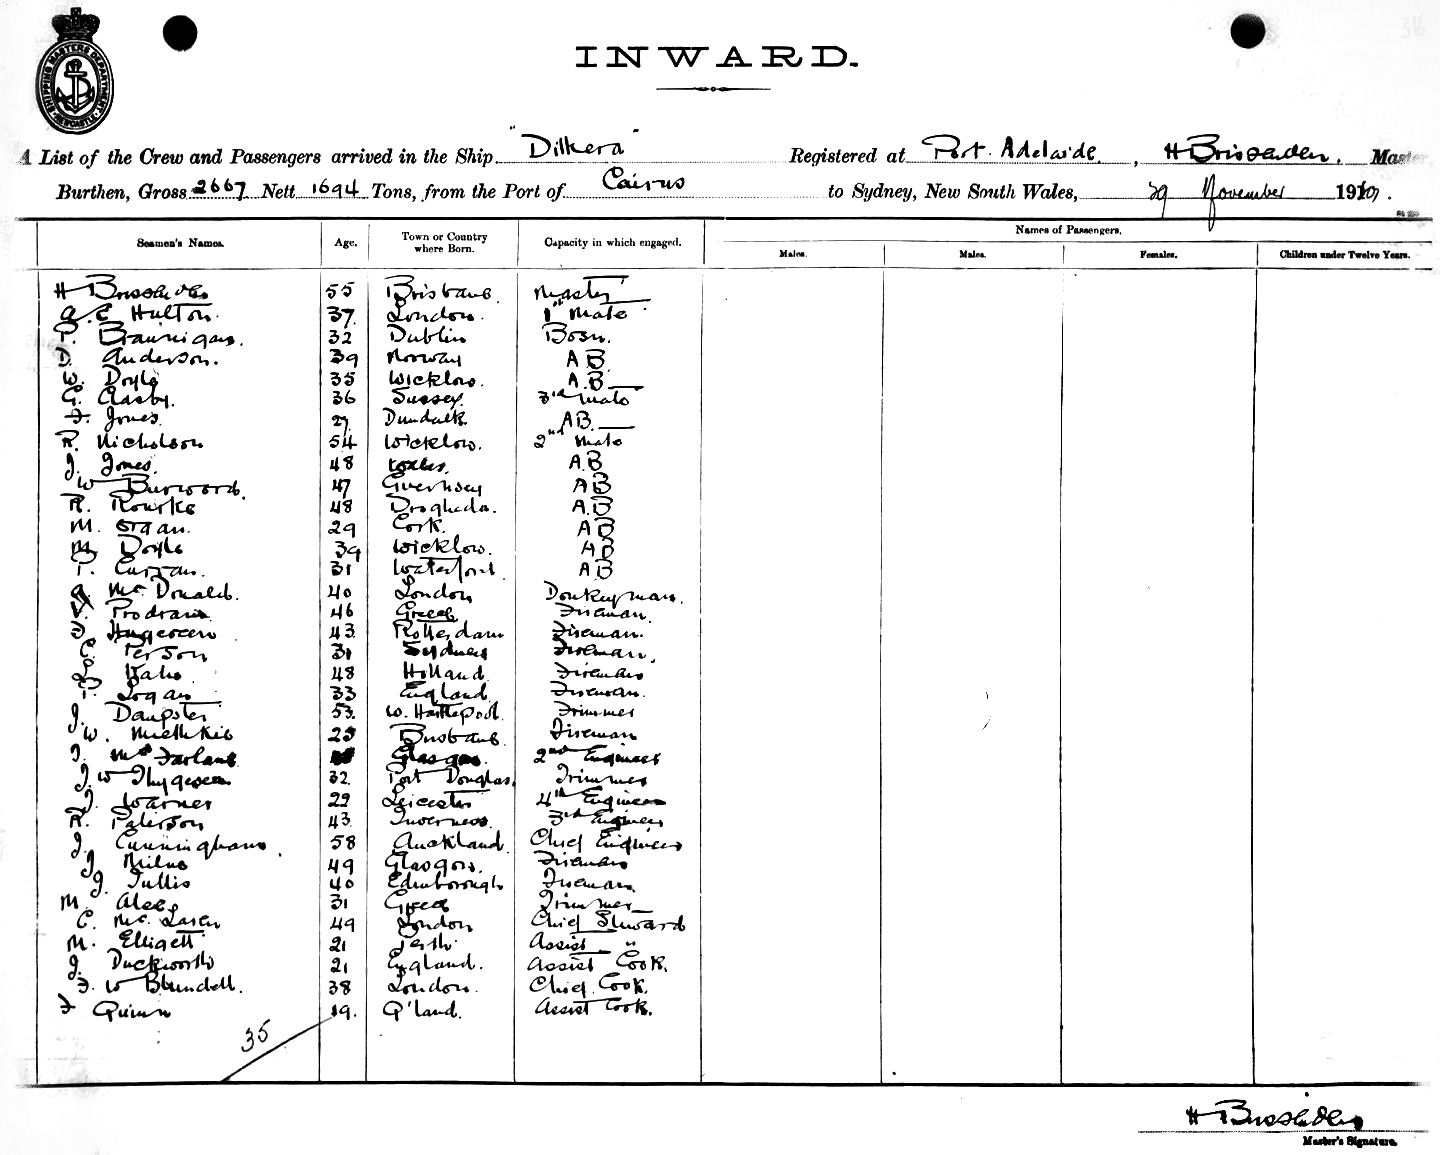 SHIPPING MASTERS DEPARTMENT NEWCASTLE
INWARD.
A List of the Crew and Passengers arrived in the Ship "Dilkera" Registered at Port Adelaide, H Brissenden, Master
Burthen, Gross 2667 Nett 1694 Tons, from the Port of Cairns to Sydney, New South Wales, 29 November 19
Seamen's Names. Age. Town or Country where Born. Capacity in which engaged. Names of Passengers.
Males. Males. Females. Children under Twelve Years.
H Brissenden 55 Brisbane Master
A. E Hulton. 37. London. 1st Mate
P. Brannigan. 32 Dublin Bosn.
D. Anderson. 39 Norway A B.
W. Doyle 35 Wicklow. A.B
G. Clasby. 36 Sussex. 3rd Mate
F. Jones. 27 Dundalk AB.
R. Nicholson 54 Wicklow. 2nd Mate
J. Jones. 48 Wales. A.B
W Burword. 47 Guernsey AB
R. Rourke 48 Drogheda. A.B
M. Organ. 29 Cork. AB
M. Doyle 39 Wicklow. AB
P. Curran. 31 Waterford AB
A. McDonald. 40 London Donkeyman.
V. Prodram 46 Greece Fireman.
43 Rotterdam Fireman.
C. Person 31 Sydney Fireman.
48 Holland Fireman
P. Logan 33 England Fireman.
J. Dampster 53. W. Hartlepool. Trimmer
W. Miethkie 25 Brisbane. Fireman
J. McFarlane Glasgow. 2nd Engineer
J. W Thygesen 32. Port Douglas. Trimmer
J. Warner 29 Leicester 4th Engineer
R. Paterson 43 Inverness. 3rd Engineer
J. Cunningham. 58 Auckland Chief Engineer
J. Milne 49 Glasgow. Fireman
J. Tullis 40 Edinborough Fireman.
M. Alex 31 Greece Trimmer
C. McLaren 49 London Chief Steward
M. Elligett 21 Perth. Assist "
J. Duckworth 21 England. Assist Cook.
F. W Blundell. 38 London. Chief Cook.
F Quinn 19. Q'land. Assist Cook.
35
H Brissenden
Master's Signature.